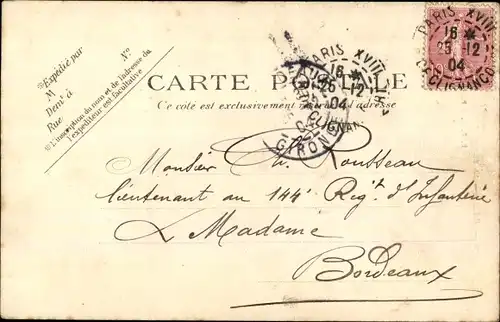 Expédié par
M
Nº
Demt à
Rue
L'inscription du nom et de l'adresse du
l'expéditeur est facultative
CARTE POSTALE
Ce côté est exclusivement réservé à l'adresse
PARIS XVIII
16 *
25 -12
04
R. CLIGNANCOURT
PARIS XVIII
16 *
25 -12
04
CLIGNAN
GIRONDE
Monsieur Ch. Rousseau
lieutenant au 144e Regt d'Infanterie
à Madame
Bordeaux